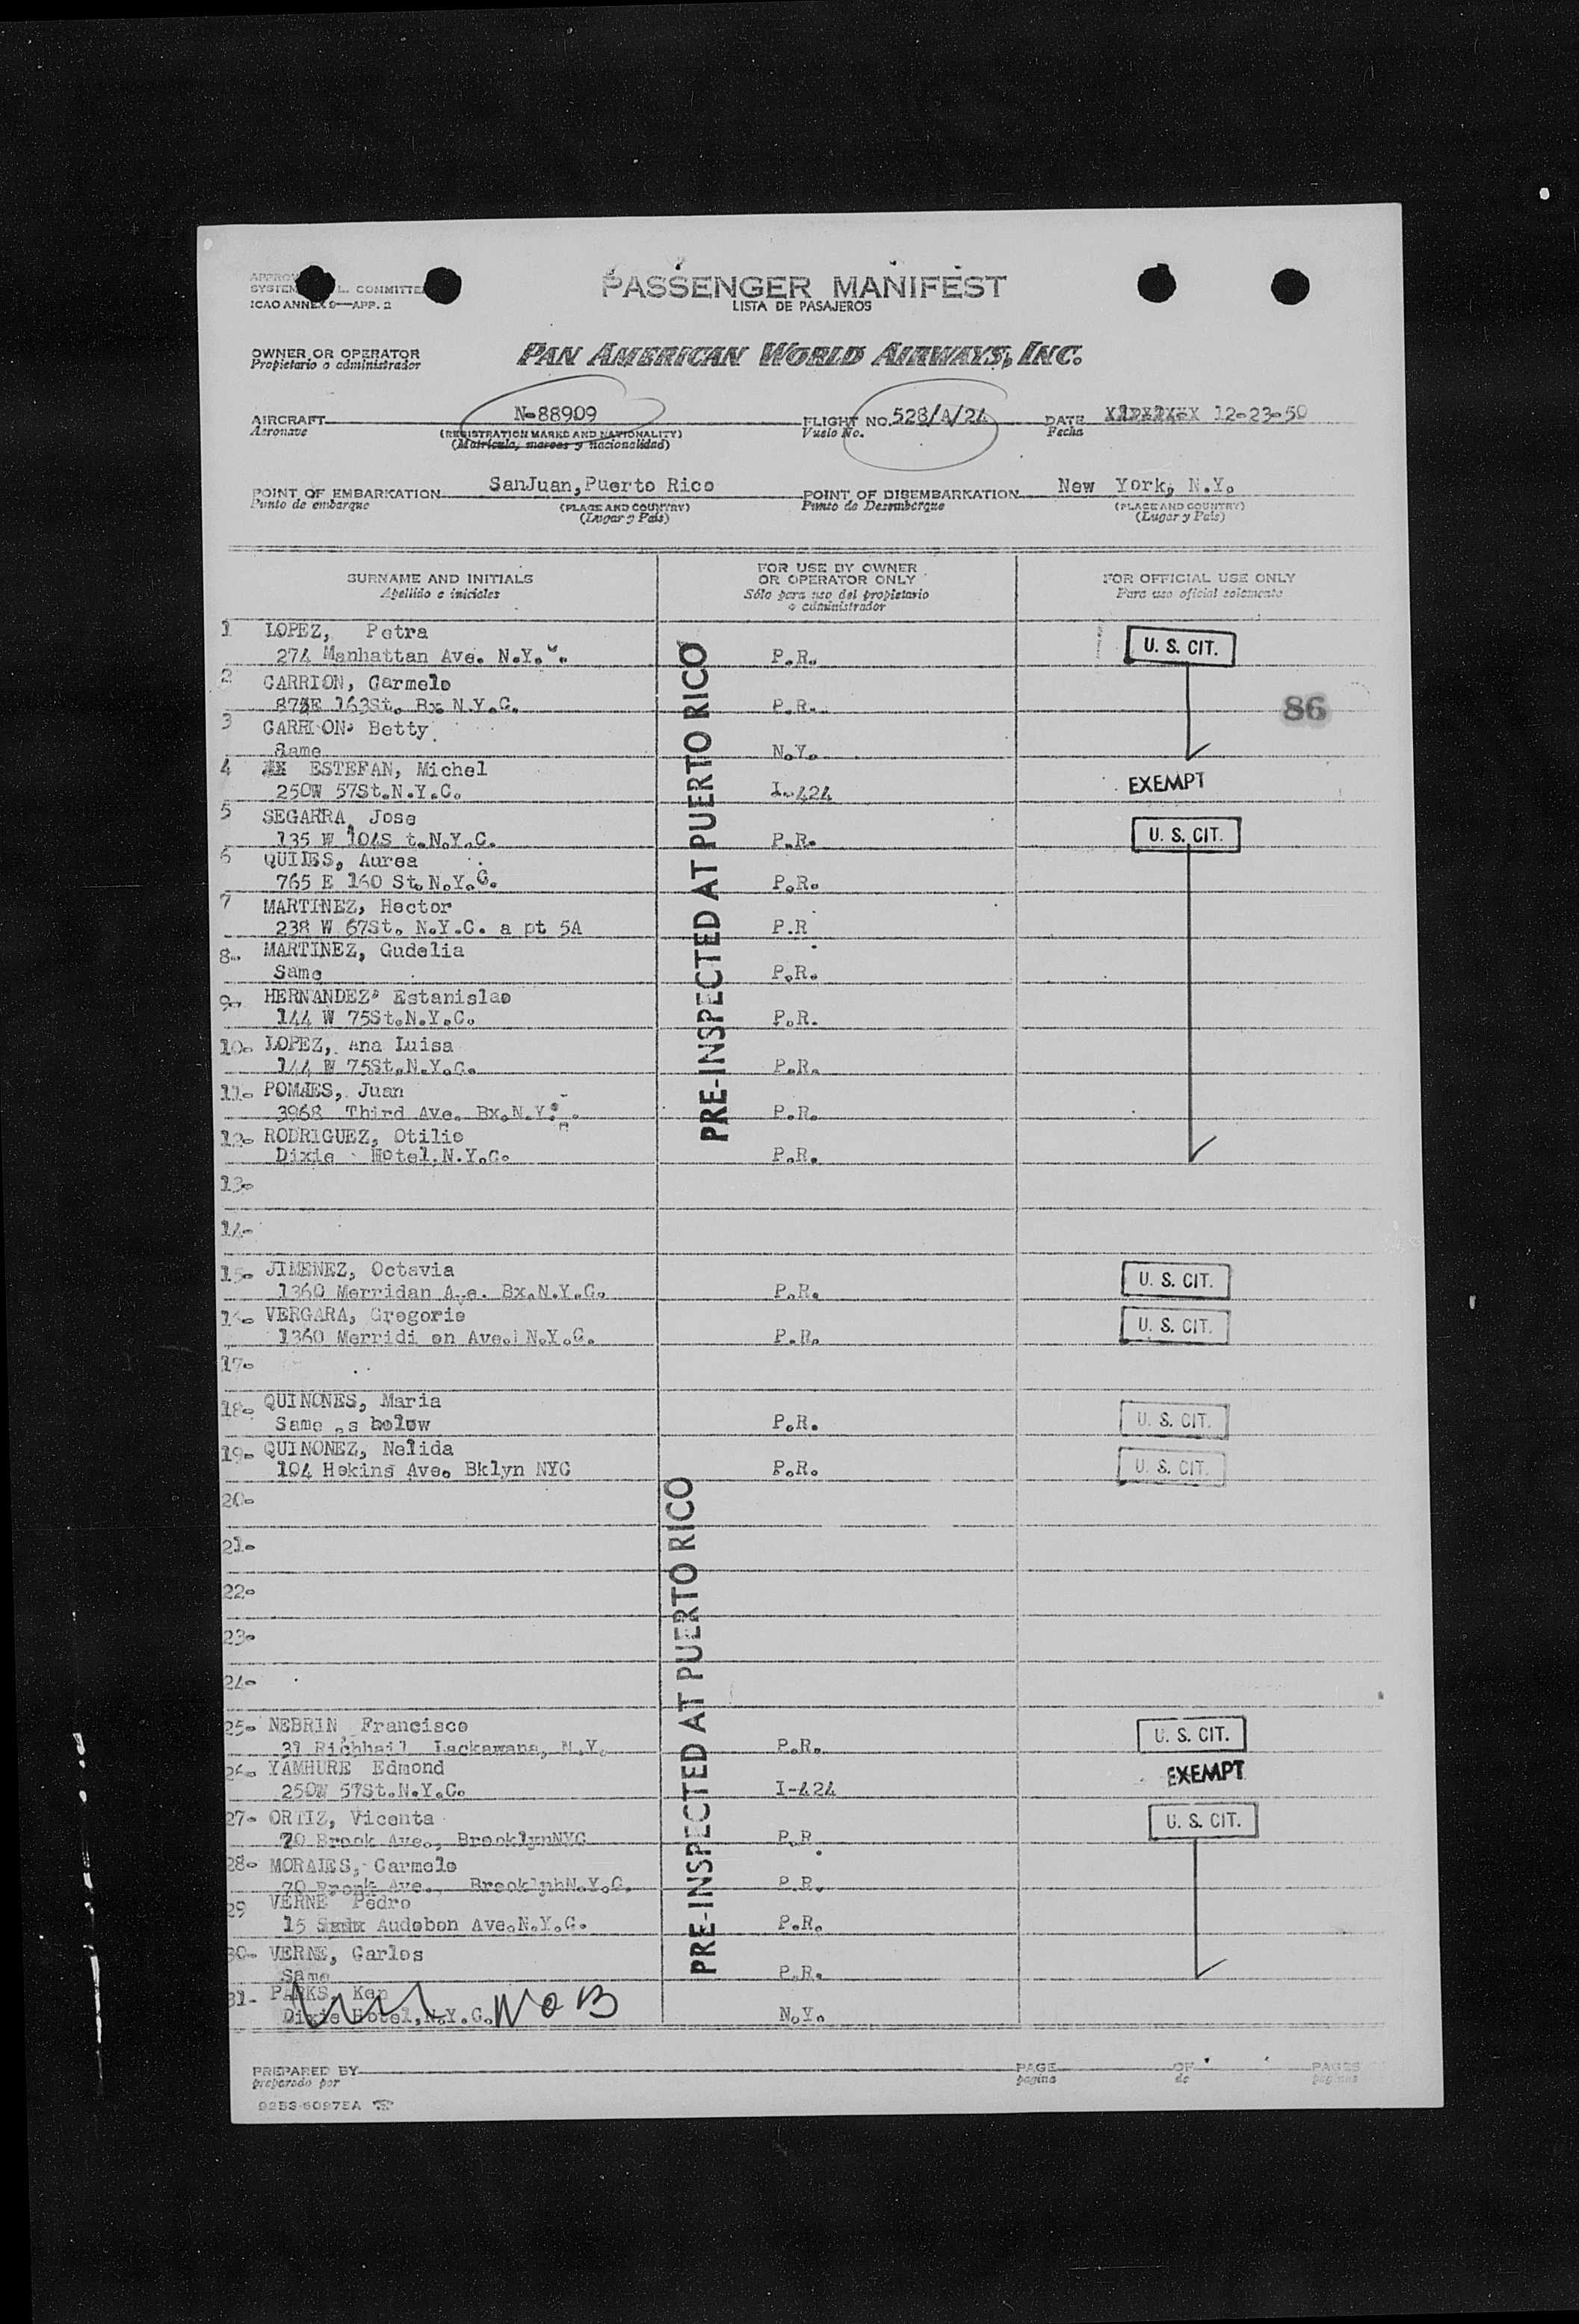 SYSTEM L. COMMITTEE
ICAO ANNEX 9—APP. 2
PASSENGER MANIFEST
LISTA DE PASAJEROS
OWNER OR OPERATOR
Propietario o administrador
PAN AMERICAN WORLD AIRWAYS, INC.
AIRCRAFT N-88909 FLIGHT NO. 528/A/24 DATE 12-23-50
Aeronave (REGISTRATION MARKS AND NATIONALITY) Vuelo No. Fecha
(Matrícula, marcas y nacionalidad)
POINT OF EMBARKATION SanJuan, Puerto Rico POINT OF DISEMBARKATION New York, N.Y.
Punto de embarque (PLACE AND COUNTRY) Punto de Desembarque (PLACE AND COUNTRY)
(Lugar y País) (Lugar y País)
SURNAME AND INITIALS FOR USE BY OWNER OR OPERATOR ONLY FOR OFFICIAL USE ONLY
Apellido e iniciales Sólo para uso del propietario o administrador Para uso oficial solamente
PRE-INSPECTED AT PUERTO RICO
1 LOPEZ, Petra U. S. CIT.
274 Manhattan Ave. N.Y. P.R.
2 CARRION, Carmelo
E 163St. Bx N.Y.C. P.R. 86
3 CARRION Betty
Same N.Y.
4 ESTEFAN, Michel EXEMPT
250W 57St.N.Y.C. I-424
5 SEGARRA, Jose U. S. CIT.
135 W 104S t.N.Y.C. P.R.
6 QUILES, Aurea
765 E 160 St. N.Y.C. P.R.
7 MARTINEZ, Hector
238 W 67St. N.Y.C. a pt 5A P.R.
8. MARTINEZ, Gudelia
Same P.R.
9. HERNANDEZ Estanislao
144 W 75St.N.Y.C. P.R.
10. LOPEZ, Ana Luisa
144 W 75St.N.Y.C. P.R.
11- POMALES, Juan
3968 Third Ave. Bx.N.Y. P.R.
12- RODRIGUEZ, Otilio
Dixie Hotel, N.Y.C. P.R.
13-
14-
15- JIMENEZ, Octavia U. S. CIT.
1360 Merridan Ave. Bx.N.Y.C. P.R.
16- VERGARA, Gregorio U. S. CIT.
1360 Merridi an Ave. N.Y.C. P.R.
17-
18- QUINONES, Maria U. S. CIT.
Same as below P.R.
19- QUINONEZ, Nelida U. S. CIT.
104 Hokins Ave. Bklyn NYC P.R.
PRE-INSPECTED AT PUERTO RICO
20-
21-
22-
23-
24-
25- NEBRIN Francisco U. S. CIT.
31 Lackawana, N.Y. P.R.
26- YAMHURE Edmond EXEMPT
250W 57St.N.Y.C. I-424
27- ORTIZ, Vicenta U. S. CIT.
70 Brook Ave., BrooklynNYC P.R.
28- MORALES, Carmelo
70 Brook Ave., BrooklynN.Y.C. P.R.
29 VERNE Pedro
15 Audobon Ave.N.Y.C. P.R.
30- VERNE, Carlos
Same P.R.
31- PARKS, Ken
Dixie Hotel, N.Y.C. NOB N.Y.
PREPARED BY PAGE OF PAGES
preparado por página de páginas